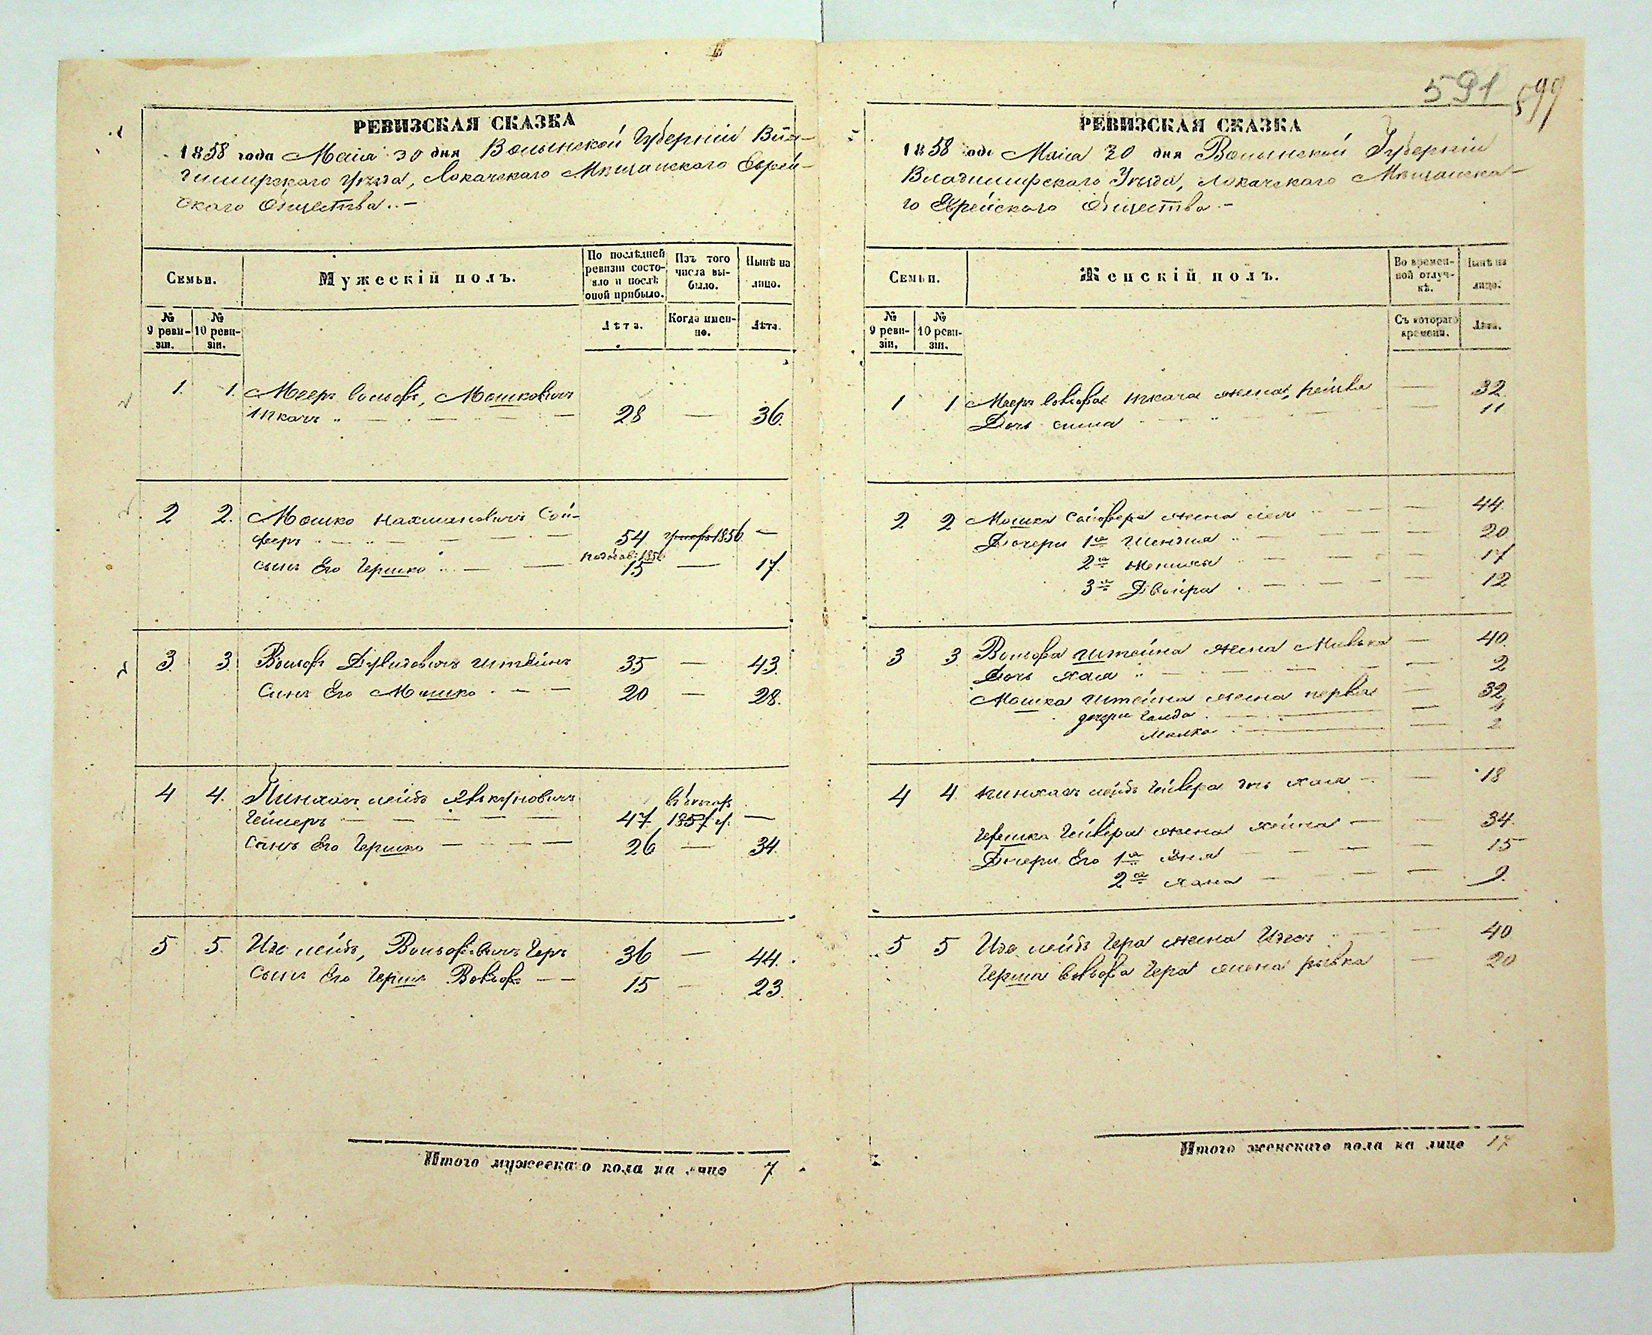 591 599
РЕВИЗСКАЯ СКАЗКА
1858 года Маія 30 дня Волынской Губерніи Вла-
димирского Уѣзда, Локачского Мѣщанского Еврей-
ского Общества. –
Семьи.
Мужескій полъ.
По послѣдней ревизіи состояло и послѣ оной прибыло.
Изъ того числа выбыло.
Нынѣ на лицо.
№ 9 ревизіи.
№ 10 ревизіи.
Лѣта.
Когда именно.
Лѣта.
1. 1. Мееръ Вольфъ, Мошковичъ
Ткачъ 28 — 36.
2 2. Мошко Нахмановичъ Сой-
феръ 54 1856 —
сынъ Его Гершко 15 — 17.
3. 3. Вольфъ Дувидовичъ Штейнъ 35 — 43.
Сынъ Его Мошко 20 — 28.
4 4. Пинхасъ Лейбъ Янкеловичъ
47 1857 г. —
Сынъ Его Гершко 26 — 34
5 5. Ицо Лейбъ, Вольфовичъ Геръ 36 — 44.
Сынъ Его Гершъ Вольфъ 15 — 23.
Итого мужескаго пола на лицо 7
РЕВИЗСКАЯ СКАЗКА
1858 года Маія 30 дня Волынской Губерніи
Владимирского Уѣзда, Локачского Мѣщанска-
го Еврейского Общества –
Семьи.
Женскій полъ.
Во временной отлучкѣ.
Нынѣ на лицо.
№ 9 ревизіи.
№ 10 ревизіи.
Съ котораго времени.
Лѣта.
1 1 Меера Вольфа Ткача жена, Рейзля — 32
Дочь 11
2 2 Мошка Сойфера жена — 44
Дочери 1я Шейндля — 20
2я — 17
3я Двойра — 12
3 3 Вольфа Штейна жена Малька — 40.
Дочь Хая — 2
Мошка Штейна жена первая — 32
дочери —
Малка — 2
4 4. Пинхаса Лейбъ дочь Хая — 18
Гершка жена Хайма — 34.
Дочери Его 1я — 15
2я Хана — 9.
5 5 Ицо Лейбъ Гера жена — 40
Герша Вольфа Гера жена Рывка — 20
Итого женскаго пола на лицо 17